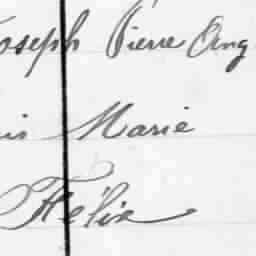 Joseph Pierre Ang
is Marie
Félix